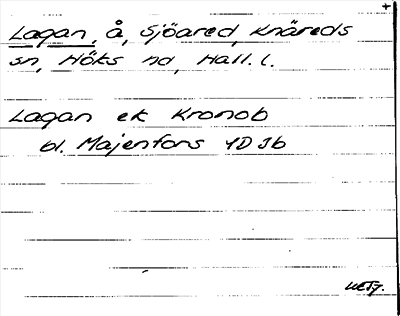 +
Lagan, å, Sjöared, Knäreds
sn, Höks hd, Hall. l.
Lagan ek Kronob
bl. Majenfors 4D Jb